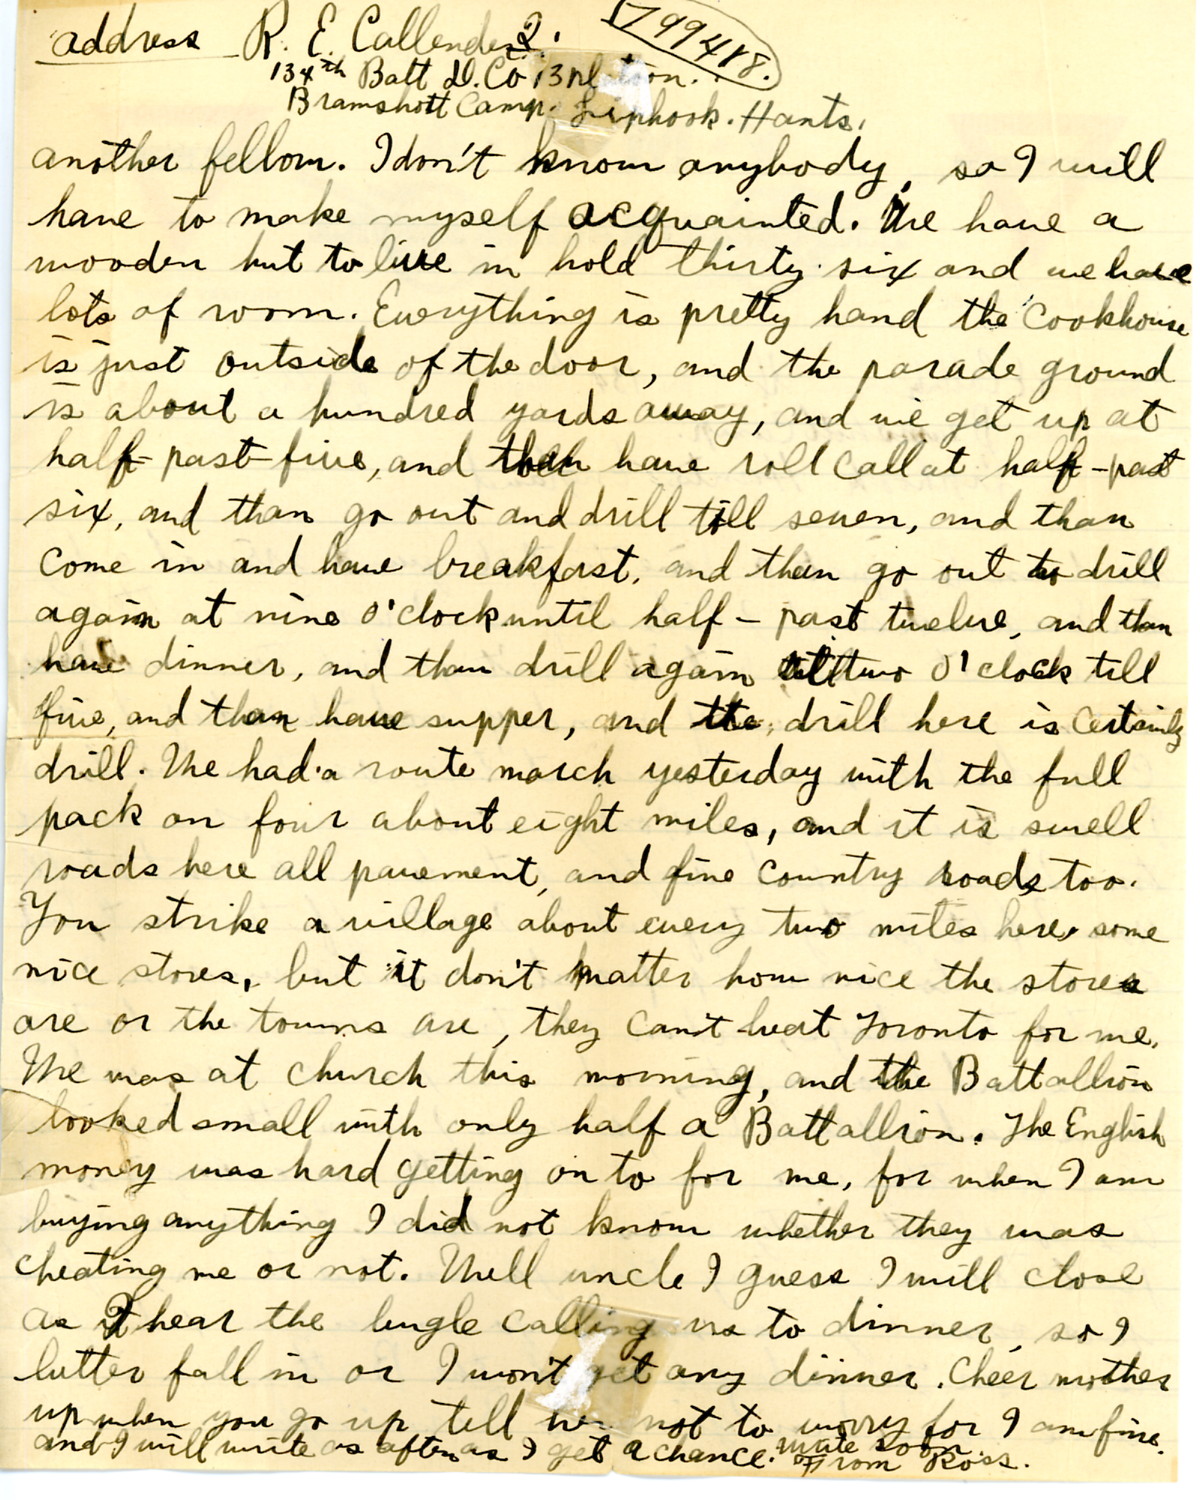 address R. E. Callender. 799418.
134th Batt D. Co 13 Platoon.
Bramshott Camp. Liphook. Hants.
another fellow. I don't know anybody, so I will
have to make myself acquainted. We have a
wooden hut to live in hold thirty six and we have
lots of room. Everything is pretty hand the Cookhouse
is just outside of the door, and the parade ground
is about a hundred yards away, and we get up at
half-past-five, and than have roll call at half-past
six, and than go out and drill till seven, and than
come in and have breakfast, and then go out to drill
again at nine o'clock until half-past twelve, and than
have dinner, and than drill again at two o'clock till
five, and than have supper, and the drill here is certainly
drill. We had a route march yesterday with the full
pack on four about eight miles, and it is swell
roads here all pavement, and fine country roads too.
You strike a village about every two miles here some
nice stores, but it don't matter how nice the stores
are or the towns are, they can't beat Toronto for me.
We was at church this morning, and the Battallion
looked small with only half a Battallion. The English
money was hard getting on to for me, for when I am
buying anything I did not know whether they was
cheating me or not. Well uncle I guess I will close
as I hear the bugle calling us to dinner, so I
better fall in or I won't get any dinner. Cheer mother
up when you go up tell her not to worry for I am fine.
and I will write as often as I get a chance. write soon.
From Ross.